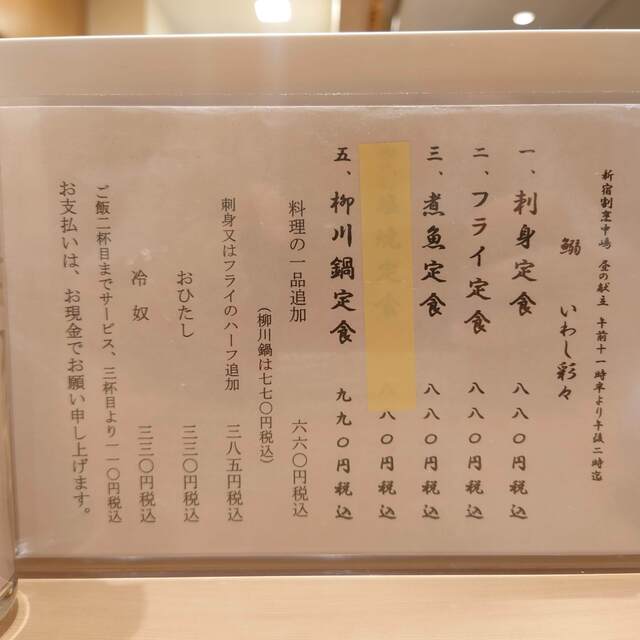 新宿割烹中嶋 昼の献立 午前十一時半より午後二時迄
鰯 いわし彩々
一、刺身定食 八八〇円税込
二、フライ定食 八八〇円税込
三、煮魚定食 八八〇円税込
焼定食 八八〇円税込
五、柳川鍋定食 九九〇円税込
料理の一品追加 六六〇円税込
(柳川鍋は七七〇円税込)
刺身又はフライのハーフ追加 三八五円税込
おひたし 三三〇円税込
冷奴 三三〇円税込
ご飯二杯目までサービス、三杯目より一一〇円税込
お支払いは、お現金でお願い申し上げます。